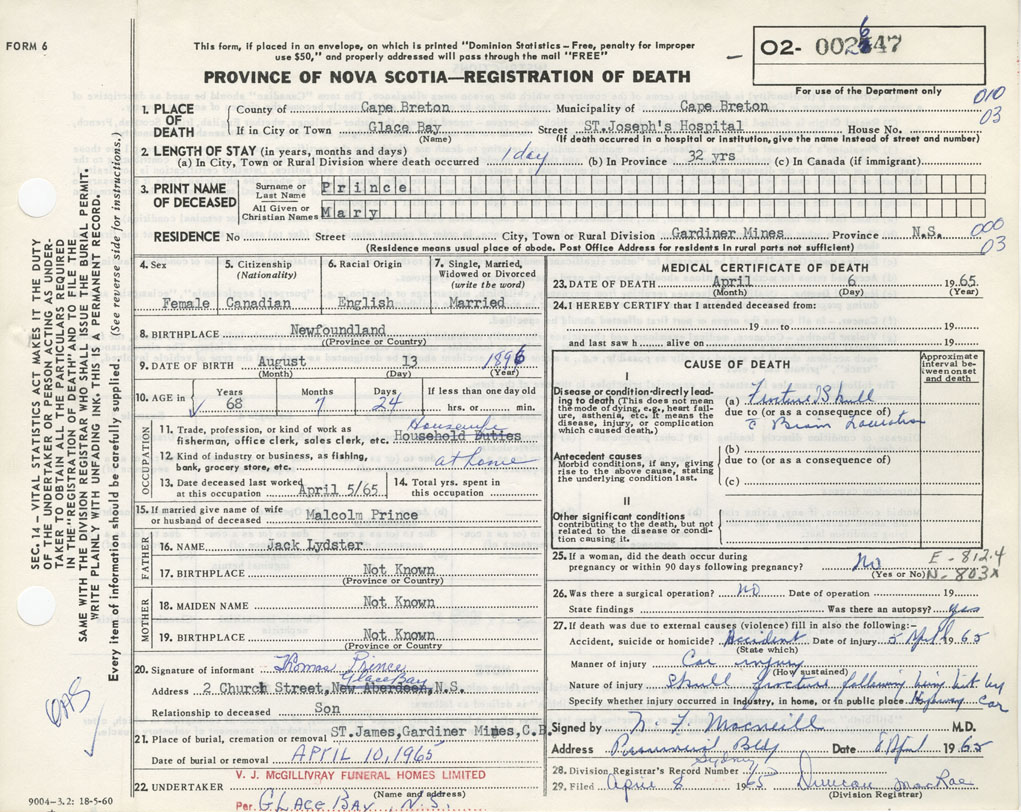 FORM 6
This form, if placed in an envelope, on which is printed "Dominion Statistics – Free, penalty for improper
use $50," and properly addressed will pass through the mail "FREE"
PROVINCE OF NOVA SCOTIA—REGISTRATION OF DEATH
02- 002647
For use of the Department only
010
03
SEC. 14 – VITAL STATISTICS ACT MAKES IT THE DUTY
OF THE UNDERTAKER OR PERSON ACTING AS UNDER-
TAKER TO OBTAIN ALL THE PARTICULARS REQUIRED
IN THE "REGISTRATION OF DEATH" AND TO FILE THE
SAME WITH THE DIVISION REGISTRAR WHO SHALL ISSUE THE BURIAL PERMIT.
WRITE PLAINLY WITH UNFADING INK. THIS IS A PERMANENT RECORD.
Every item of information should be carefully supplied. (See reverse side for instructions.)
1. PLACE OF DEATH
County of Cape Breton Municipality of Cape Breton
If in City or Town Glace Bay Street ST.Joseph's Hospital House No.
(Name) (If death occurred in a hospital or institution, give the name instead of street and number)
2. LENGTH OF STAY (in years, months and days)
(a) In City, Town or Rural Division where death occurred 1 day (b) In Province 32 yrs (c) In Canada (if immigrant)
3. PRINT NAME OF DECEASED
Surname or Last Name Prince
All Given or Christian Names Mary
RESIDENCE No Street City, Town or Rural Division Gardiner Mines Province N.S.
(Residence means usual place of abode. Post Office Address for residents in rural parts not sufficient)
000
03
4. Sex
Female
5. Citizenship (Nationality)
Canadian
6. Racial Origin
English
7. Single, Married, Widowed or Divorced (write the word)
Married
8. BIRTHPLACE Newfoundland
(Province or Country)
9. DATE OF BIRTH August 13 1896
(Month) (Day) (Year)
10. AGE in Years 68 Months 7 Days 24 If less than one day old hrs. or min.
OCCUPATION
11. Trade, profession, or kind of work as
fisherman, office clerk, sales clerk, etc. Household Duties Housewife
12. Kind of industry or business, as fishing,
bank, grocery store, etc. at home
13. Date deceased last worked
at this occupation April 5/65
14. Total yrs. spent in
this occupation
15. If married give name of wife
or husband of deceased Malcolm Prince
FATHER
16. NAME Jack Lydster
17. BIRTHPLACE Not Known
(Province or Country)
MOTHER
18. MAIDEN NAME Not Known
19. BIRTHPLACE Not Known
(Province or Country)
20. Signature of informant Thomas Prince
Glace Bay
Address 2 Church Street, New Aberdeen, N.S.
Relationship to deceased Son
21. Place of burial, cremation or removal ST.James,Gardiner Mines,C.B.
Date of burial or removal APRIL 10, 1965
V. J. McGILLIVRAY FUNERAL HOMES LIMITED
22. UNDERTAKER
(Name and address)
Per GLACE BAY, N.S.
9004-3.2: 18-5-60
MEDICAL CERTIFICATE OF DEATH
23. DATE OF DEATH April 6 19 65
(Month) (Day) (Year)
24. I HEREBY CERTIFY that I attended deceased from:
19 to 19
and last saw h alive on 19
CAUSE OF DEATH
Approximate interval between onset and death
I
Disease or condition directly leading
to death (This does not mean
the mode of dying, e.g., heart fail-
ure, asthenia, etc. It means the
disease, injury, or complication
which caused death.)
(a) Skull
due to (or as a consequence of)
Brain
Antecedent causes
Morbid conditions, if any, giving
rise to the above cause, stating
the underlying condition last.
(b)
due to (or as a consequence of)
(c)
II
Other significant conditions
contributing to the death, but not
related to the disease or condi-
tion causing it.
25. If a woman, did the death occur during
pregnancy or within 90 days following pregnancy? No
(Yes or No)
E - 812.4
N - 803
26. Was there a surgical operation? no Date of operation 19
State findings Was there an autopsy? yes
27. If death was due to external causes (violence) fill in also the following:–
Accident, suicide or homicide? Accident Date of injury 5 April 19 65
(State which)
Manner of injury Car injury
(How sustained)
Nature of injury Skull fracture following being hit by
car
Specify whether injury occurred in Industry, in home, or in public place Highway
Signed by M.D.
Address Sydney Date 8 April 19 65
28. Division Registrar's Record Number
29. Filed April 8 1965 Duncan MacRae
(Division Registrar)